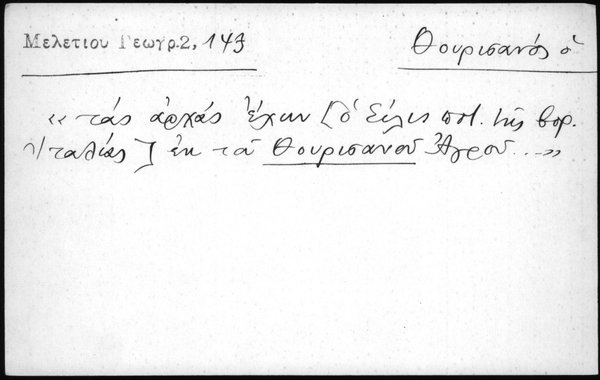 Μελετίου Γεωγρ.2, 143
Θουρισανός ὁ
« τάς ἀρχάς ἔχων [ὁ Σίλις ποτ. τῆς βορ.
Ἰταλίας] ἐκ τοῦ Θουρισανοῦ Ἀγροῦ... »